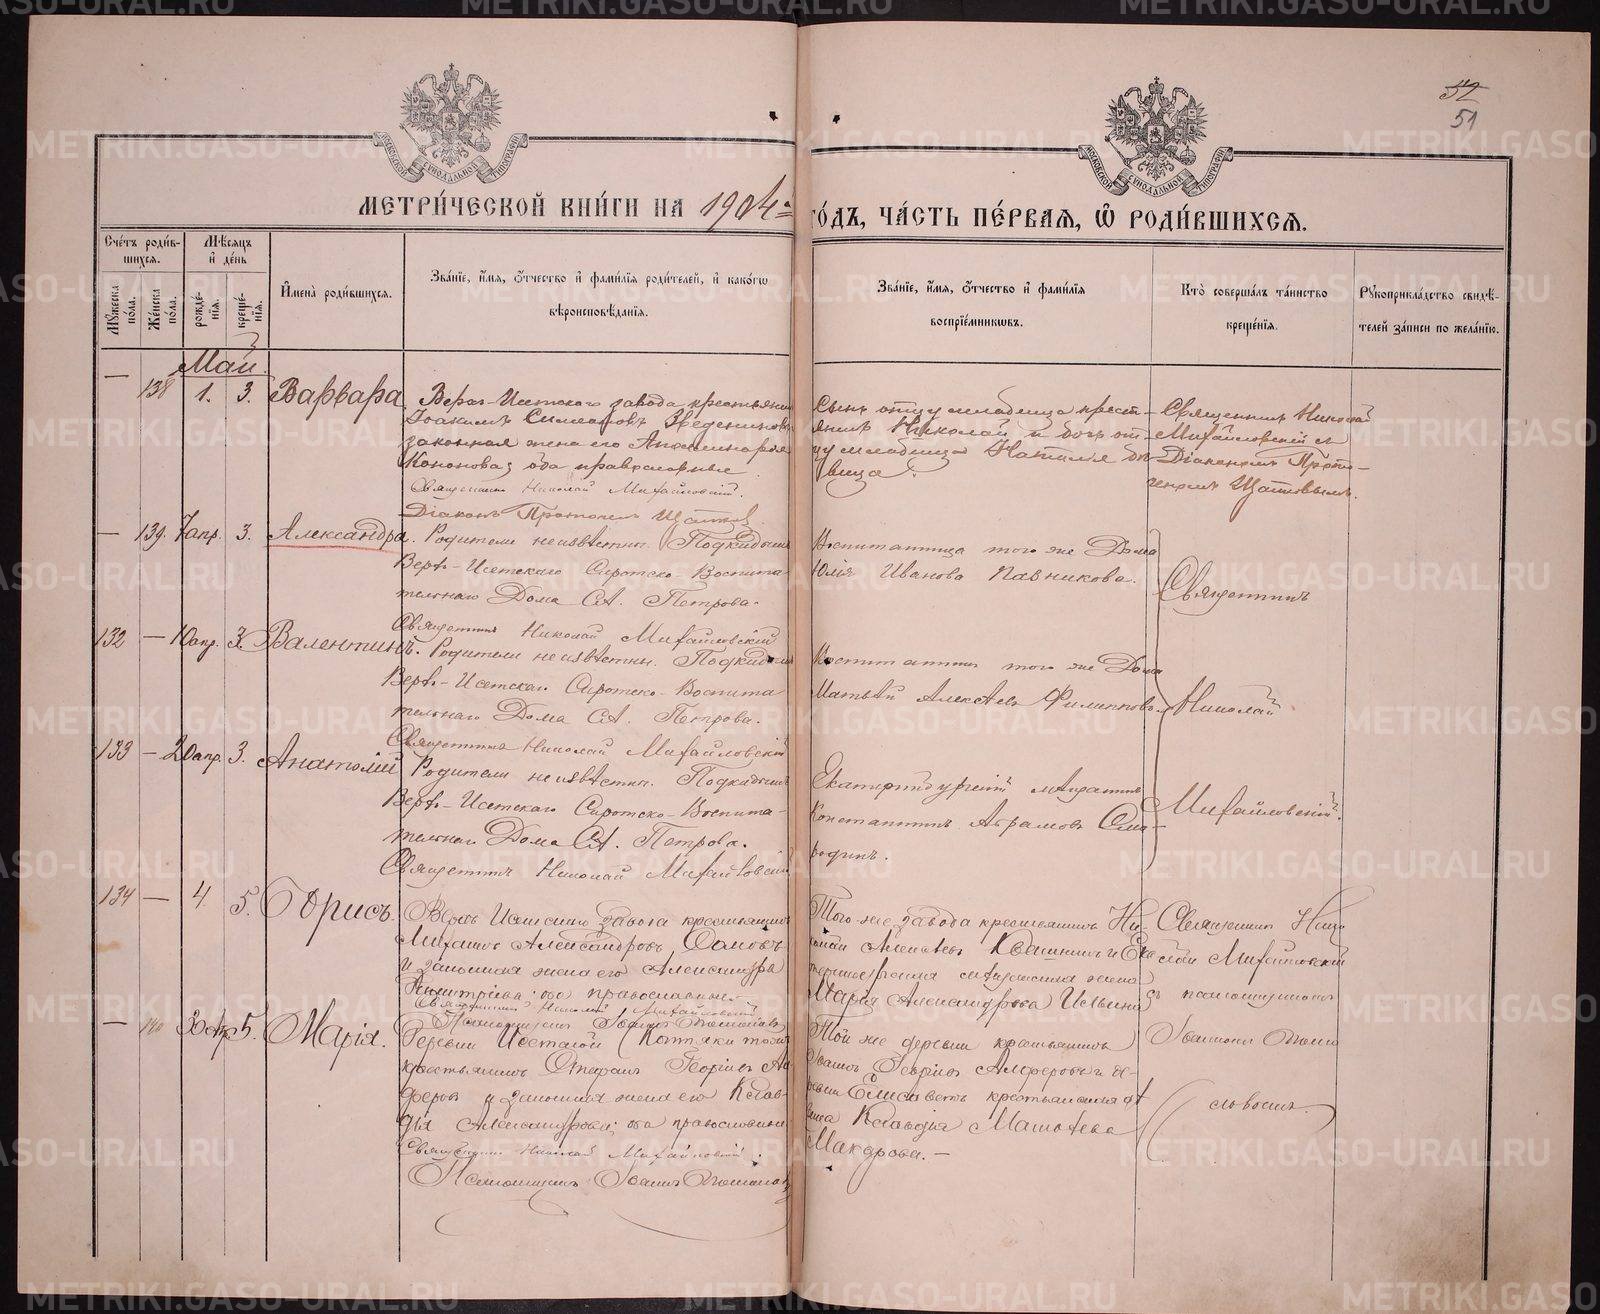 52
51
МЕТРИ́ЧЕСКОЙ КНИ́ГИ НА 1904 ГО́ДЪ, ЧА́СТЬ ПЕ́РВАЯ, Ѡ РОДИ́ВШИХСЯ.
Счётъ роди́вшихся.
Мꙋ́жеска по́ла.
Же́нска по́ла.
Мѣ́сяцъ и де́нь
рожде́нїя.
креще́нїя.
И́мена роди́вшихся.
Зва́нїе, и́мя, ѻ́тчество и фами́лїя роди́телей, и како́гѡ вѣроисповѣ́данїя.
Зва́нїе, и́мя, ѻ́тчество и фами́лїя воспрїе́мникѡвъ.
Кто̀ соверша́лъ та́инство креще́нїя.
Рꙋкоприкла́дство свидѣ́телей за́писи по жела́нїю.
Май
— 138 1. 3. Варвара
Верх-Исетского завода крестьянин
Іоакимъ Симеоновъ
законная жена его
Кононова; оба православные
Священникъ Николай Михайловскій.
Діаконъ
Сынъ отцу младенца крест-
янинъ Николай и дочь от-
цу младенца Наталія дѣ-
вица.
Священникъ Николай
Михайловскій съ
Діакономъ
— 139. 7 апр. 3. Александра.
Родители неизвѣстны. Подкидышъ
Верх-Исетскаго Сиротско-Воспита-
тельнаго Дома С.А. Петрова.
Священникъ Николай Михайловскій
Воспитанница того же Дома
Юлія Иванова
Священникъ
132 — 10 апр. 3. Валентинъ.
Родители неизвѣстны. Подкидышъ
Верх-Исетскаго Сиротско-Воспита
тельнаго Дома С.А. Петрова.
Священникъ Николай Михайловскій
Воспитанникъ того же Дома
Матвѣй Алексѣевъ Филипповъ.
Николай
133 — 20 апр. 3. Анатолій
Родители неизвѣстны. Подкидышъ
Верх-Исетскаго Сиротско-Воспита-
тельнаго Дома С.А. Петрова.
Священникъ Николай Михайловскій
Екатеринбургскій мѣщанинъ
Константинъ Абрамовъ Смо-
родинъ.
Михайловскій.
134 — 4 5. Борисъ.
Верхъ Исетского завода крестьянинъ
Михаилъ Александровъ
и законная жена его Александра
Димитріева; оба православные.
Священникъ Николай Михайловскій
Псаломщикъ Іоаннъ
Того же завода крестьянинъ Ни-
колай Алексѣевъ Квашнинъ и Ека
теринбургская мѣщанская жена
Марія Александрова Ильина
Священникъ Нико
лай Михайловскій
съ псаломщикомъ
Іоанномъ
— 140 30 Апр 5. Марія.
Деревни Исетской
крестьянинъ Стефанъ Георгіевъ Ал
феровъ и законная жена его Клав-
дія Александрова; оба православные
Священникъ Николай Михайловскій.
Псаломщикъ Іоаннъ
Той же деревни крестьянинъ
Іоаннъ Георгіевъ Алферовъ и де-
ревни Елисаветъ крестьянская дѣ
вица Клавдія Матвѣева
Макарова. —